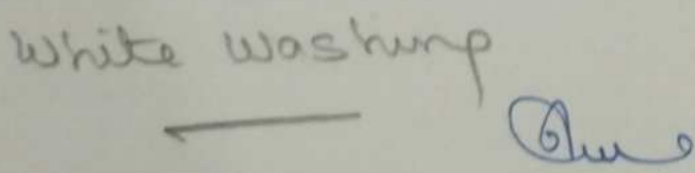 White Washing